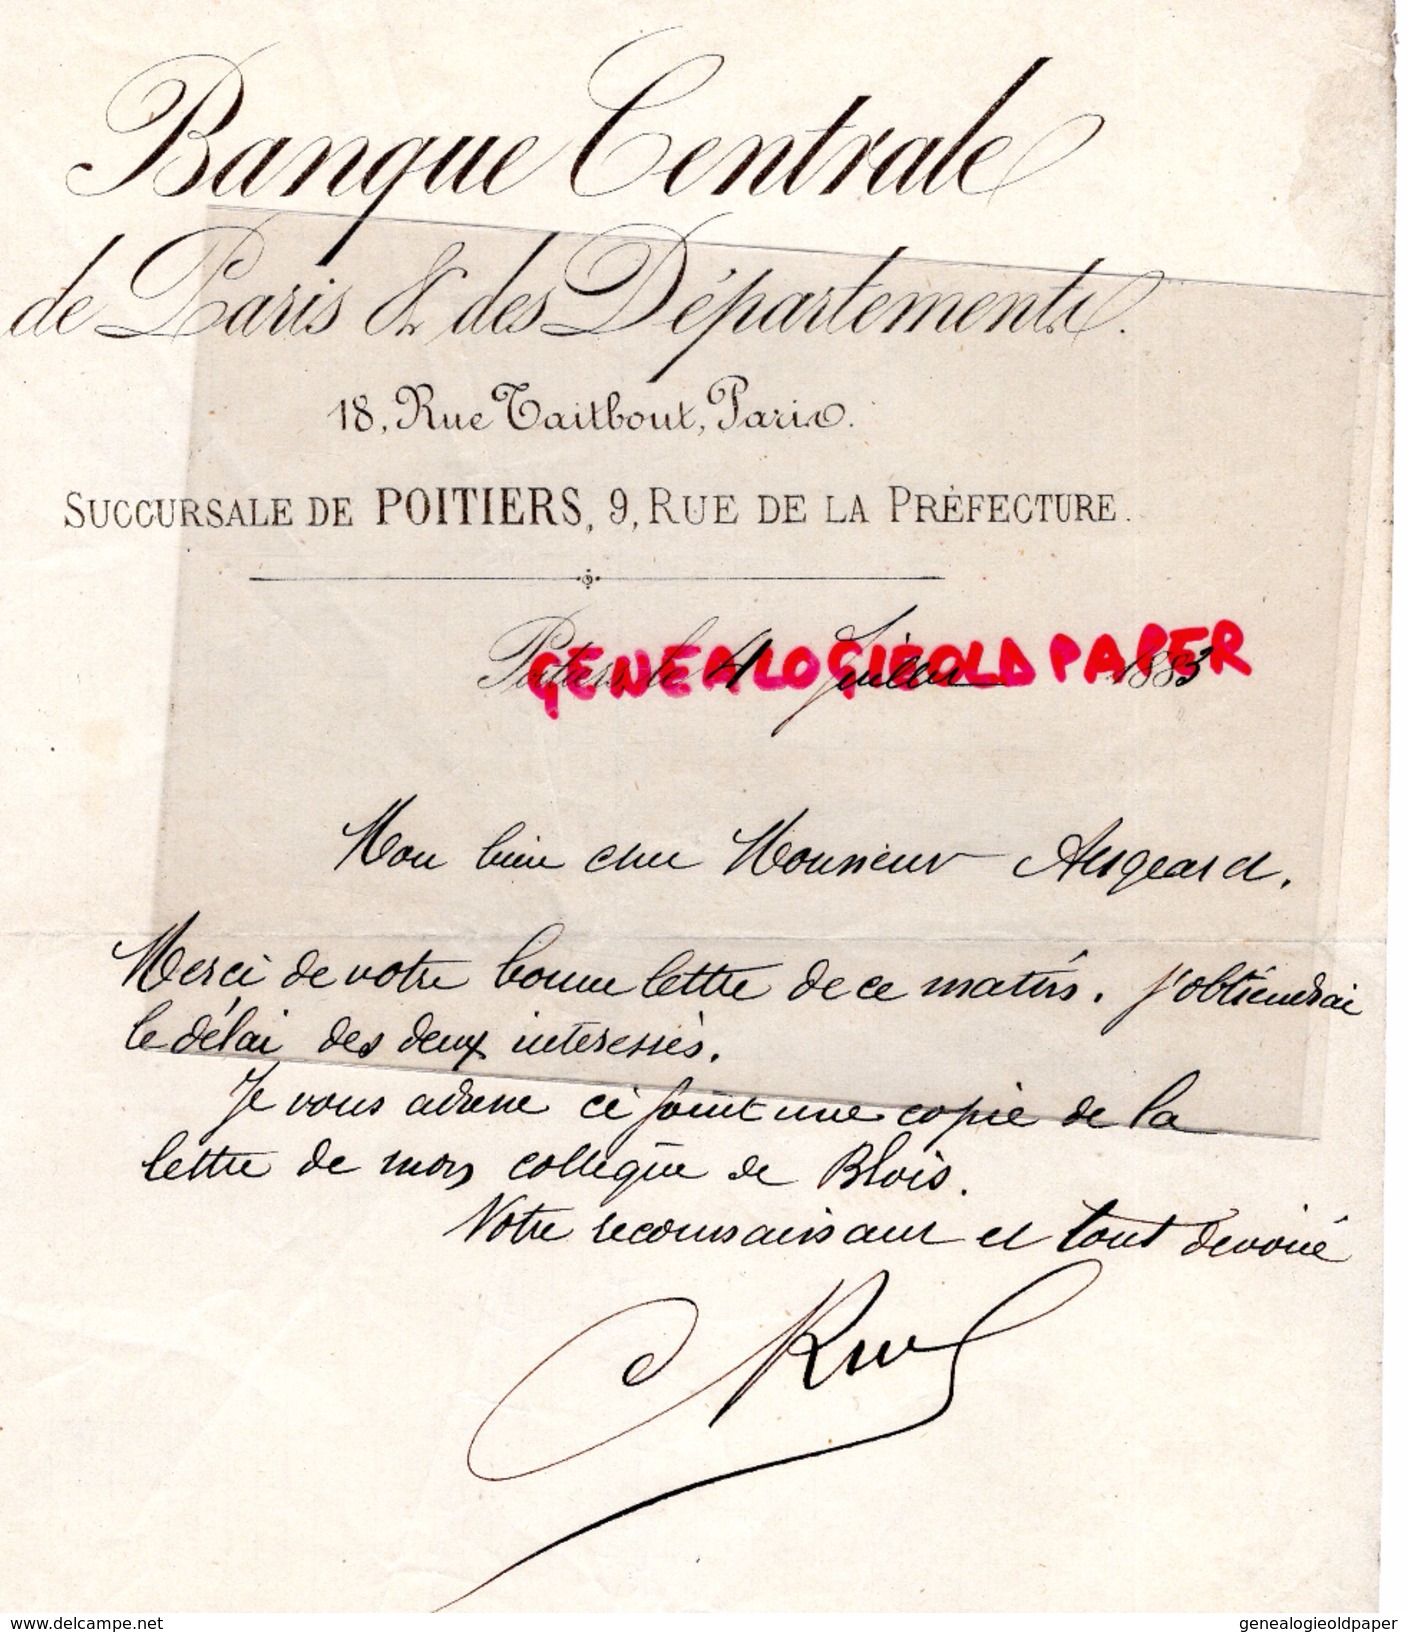 Banque Centrale
de Paris & des Départements.
18, Rue Taitbout, Paris.
SUCCURSALE DE POITIERS, 9, RUE DE LA PRÉFECTURE.
Poitiers, le 4 Juillet 1883
GENEALOGIEOLDPAPER
Mon bien cher Monsieur Augeard.
Merci de votre bonne lettre de ce matin. J'obtiendrai
le délai des deux intéressés.
Je vous adresse ci joint une copie de la
lettre de mon collègue de Blois.
Votre reconnaissant et tout dévoué
www.delcampe.net
genealogieoldpaper